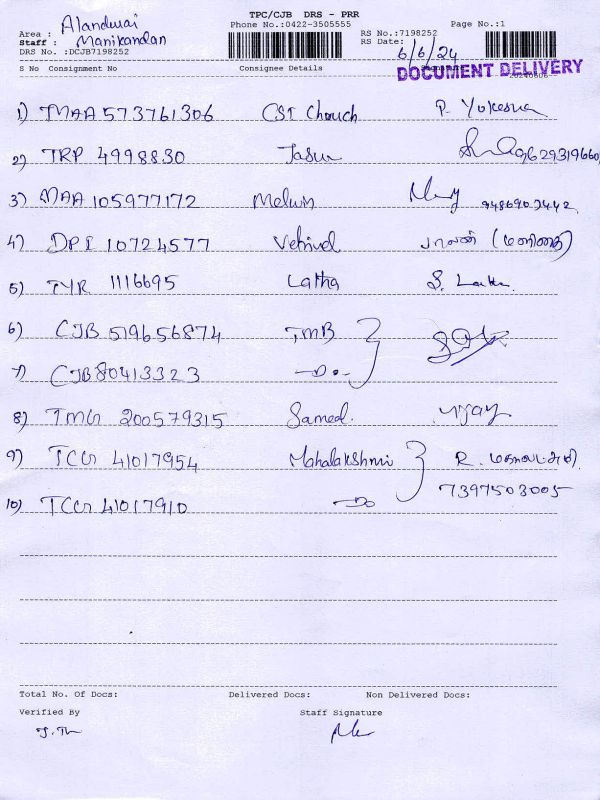 TPC/CJB DRS - PRR
Phone No.:0422-3505555
Page No.:1
Area : Alandurai
Staff : Manikandan
DRS No. :DCJB7198252
RS No.:7198252
RS Date: 6/6/24
S No Consignment No Consignee Details
DOCUMENT DELIVERY
1) MAA 573761306 CSI Chruch P. Yokesha
2) TRP 4998830 9629319660
3) MAA 105977172 Melwin 9486902442
4) DPI 10724577 Vetrivel பாலன்
5) TYR 1116695 Latha S. Latha
6) CJB 519656874 TMB
7) CJB 80413323 -Do-
8) TMG 200579315 Samed. vijay
9) TCG 41017954 Mahalakshmi R. மகாலட்சுமி
7397503005
10) TCG 41017910 -Do
Total No. Of Docs: Delivered Docs: Non Delivered Docs:
Verified By Staff Signature